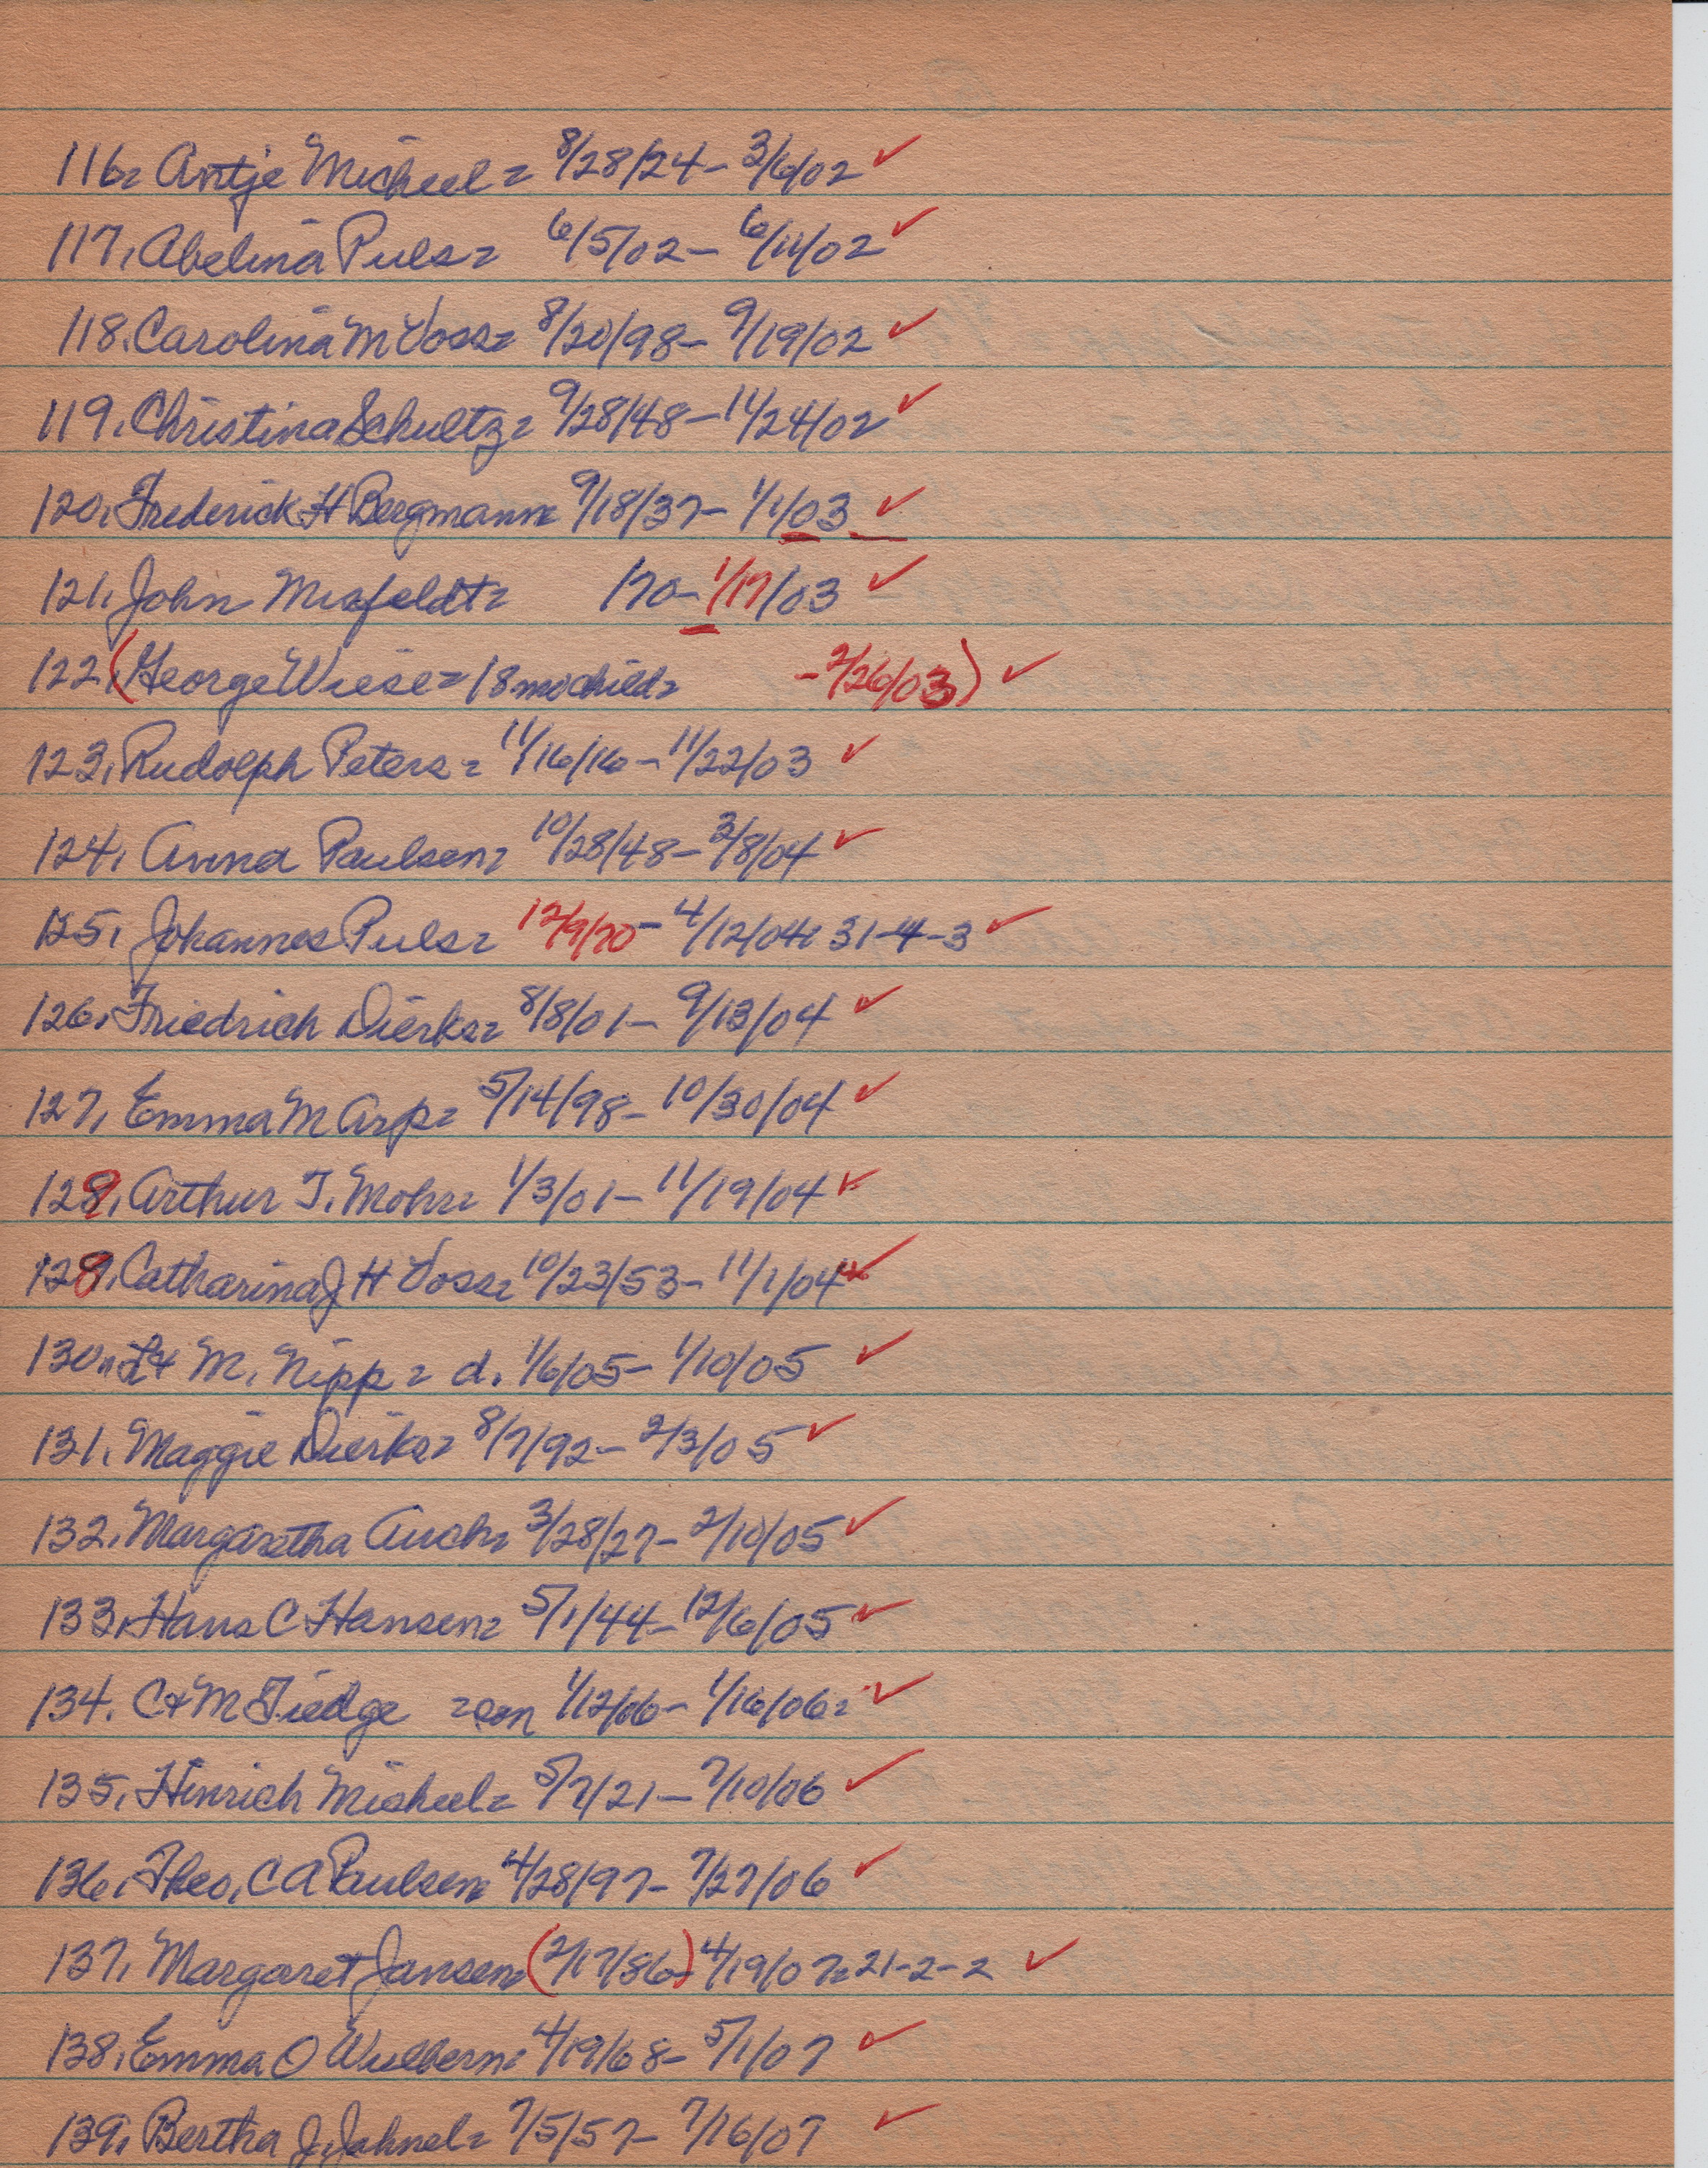 116= Antje Micheel= 8/28/24- 3/6/02 ✓
117. Abelina Puls= 6/5/02- 6/11/02 ✓
118. Carolina M Voss= 8/20/98- 9/19/02 ✓
119. Christina Schultz= 9/28/48- 11/24/02 ✓
120. Frederick H Bergmann= 9/18/37- 1/1/03 ✓
121. John Misfeldt= 170- 1/17/03 ✓
122. (George Wiese= 18 mo child= -2/26/03) ✓
123. Rudolph Peters= 11/16/16- 11/22/03 ✓
124. Anna Paulsen= 10/28/48- 3/8/04 ✓
125. Johannes Puls= 12/9/70- 4/12/04= 31-4-3 ✓
126. Friedrich Dierks= 8/8/01- 9/13/04 ✓
127. Emma M Arp= 5/14/98- 10/30/04 ✓
129. Arthur J. Mohr= 1/3/01- 11/19/04 ✓
128. Catharina J H Voss= 10/23/53- 11/1/04 ✓
130. M. Nipp= d. 1/6/05- 1/10/05 ✓
131. Maggie Dierks= 8/7/92- 2/3/05 ✓
132. Margaretha Auch= 3/28/27- 2/10/05 ✓
133. Hans C Hansen= 5/1/44- 12/6/05 ✓
134. C+M Tiedge =son 1/12/06- 1/16/06= ✓
135. Hinrich Micheel= 5/7/21- 7/10/06 ✓
136. Theo. C A Paulsen= 4/28/97- 7/27/06 ✓
137. Margaret Jansen= (2/17/86)- 4/19/07= 21-2-2 ✓
138. Emma O Wulbern= 4/19/68- 5/1/07 ✓
139. Bertha J. Jahnel= 7/5/57- 7/16/07 ✓